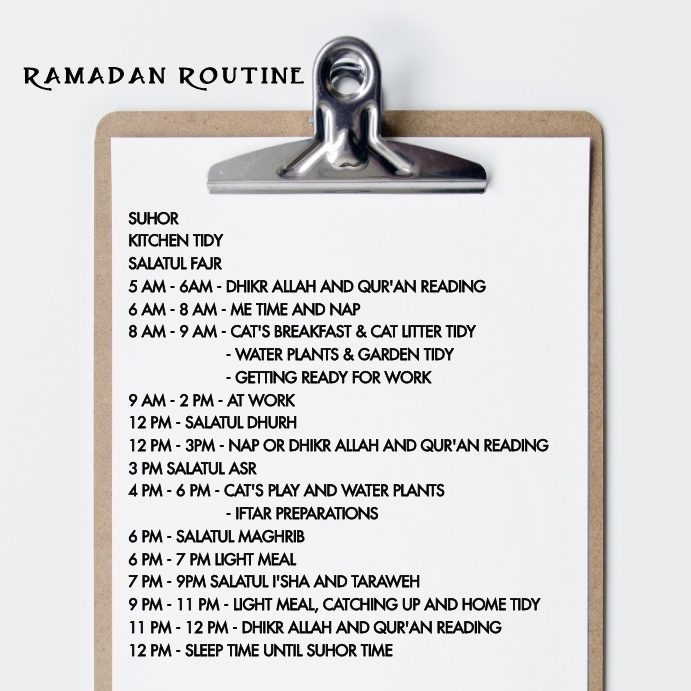 RAMADAN ROUTINE
SUHOR
KITCHEN TIDY
SALATUL FAJR
5 AM - 6AM - DHIKR ALLAH AND QUR'AN READING
6 AM - 8 AM - ME TIME AND NAP
8 AM - 9 AM - CAT'S BREAKFAST & CAT LITTER TIDY
- WATER PLANTS & GARDEN TIDY
- GETTING READY FOR WORK
9 AM - 2 PM - AT WORK
12 PM - SALATUL DHURH
12 PM - 3PM - NAP OR DHIKR ALLAH AND QUR'AN READING
3 PM SALATUL ASR
4 PM - 6 PM - CAT'S PLAY AND WATER PLANTS
- IFTAR PREPARATIONS
6 PM - SALATUL MAGHRIB
6 PM - 7 PM LIGHT MEAL
7 PM - 9PM SALATUL I'SHA AND TARAWEH
9 PM - 11 PM - LIGHT MEAL, CATCHING UP AND HOME TIDY
11 PM - 12 PM - DHIKR ALLAH AND QUR'AN READING
12 PM - SLEEP TIME UNTIL SUHOR TIME